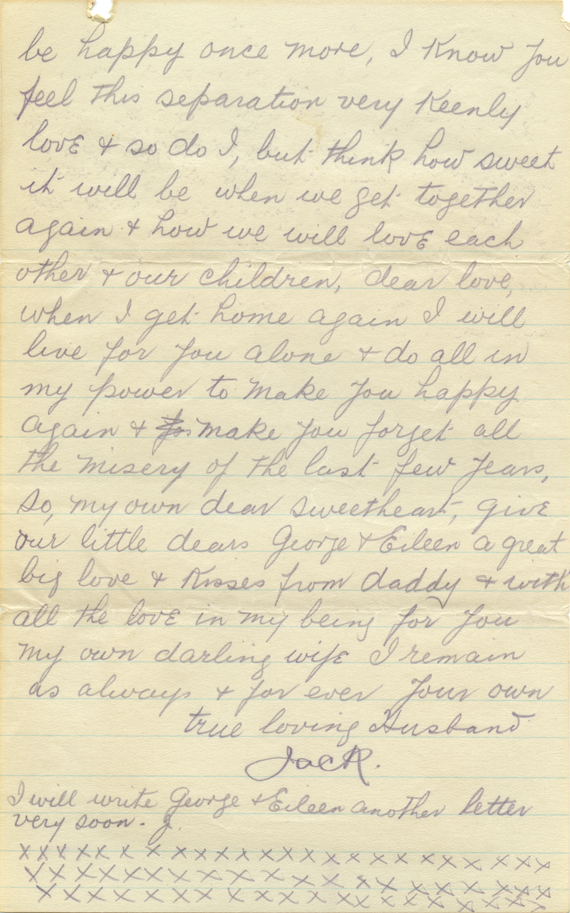 be happy once more, I know you
feel this separation very keenly
love & so do I, but think how sweet
it will be when we get together
again & how we will love each
other & our children, dear love,
when I get home again I will
live for you alone & do all in
my power to make you happy
again & make you forget all
the misery of the last few years,
so, my own dear sweetheart, give
our little dears George & Eileen a great
big love & kisses from daddy & with
all the love in my being for you
my own darling wife I remain
as always & for ever your own
true loving Husband
Jack.
I will write George & Eileen another letter
very soon - J.
x x x x x x x x x x x x x x x x x x x x x x x x x x x
x x x x x x x x x x x x x x x x x x x x x x x x x
x x x x x x x x x x x x x x x x x x x x x x x x